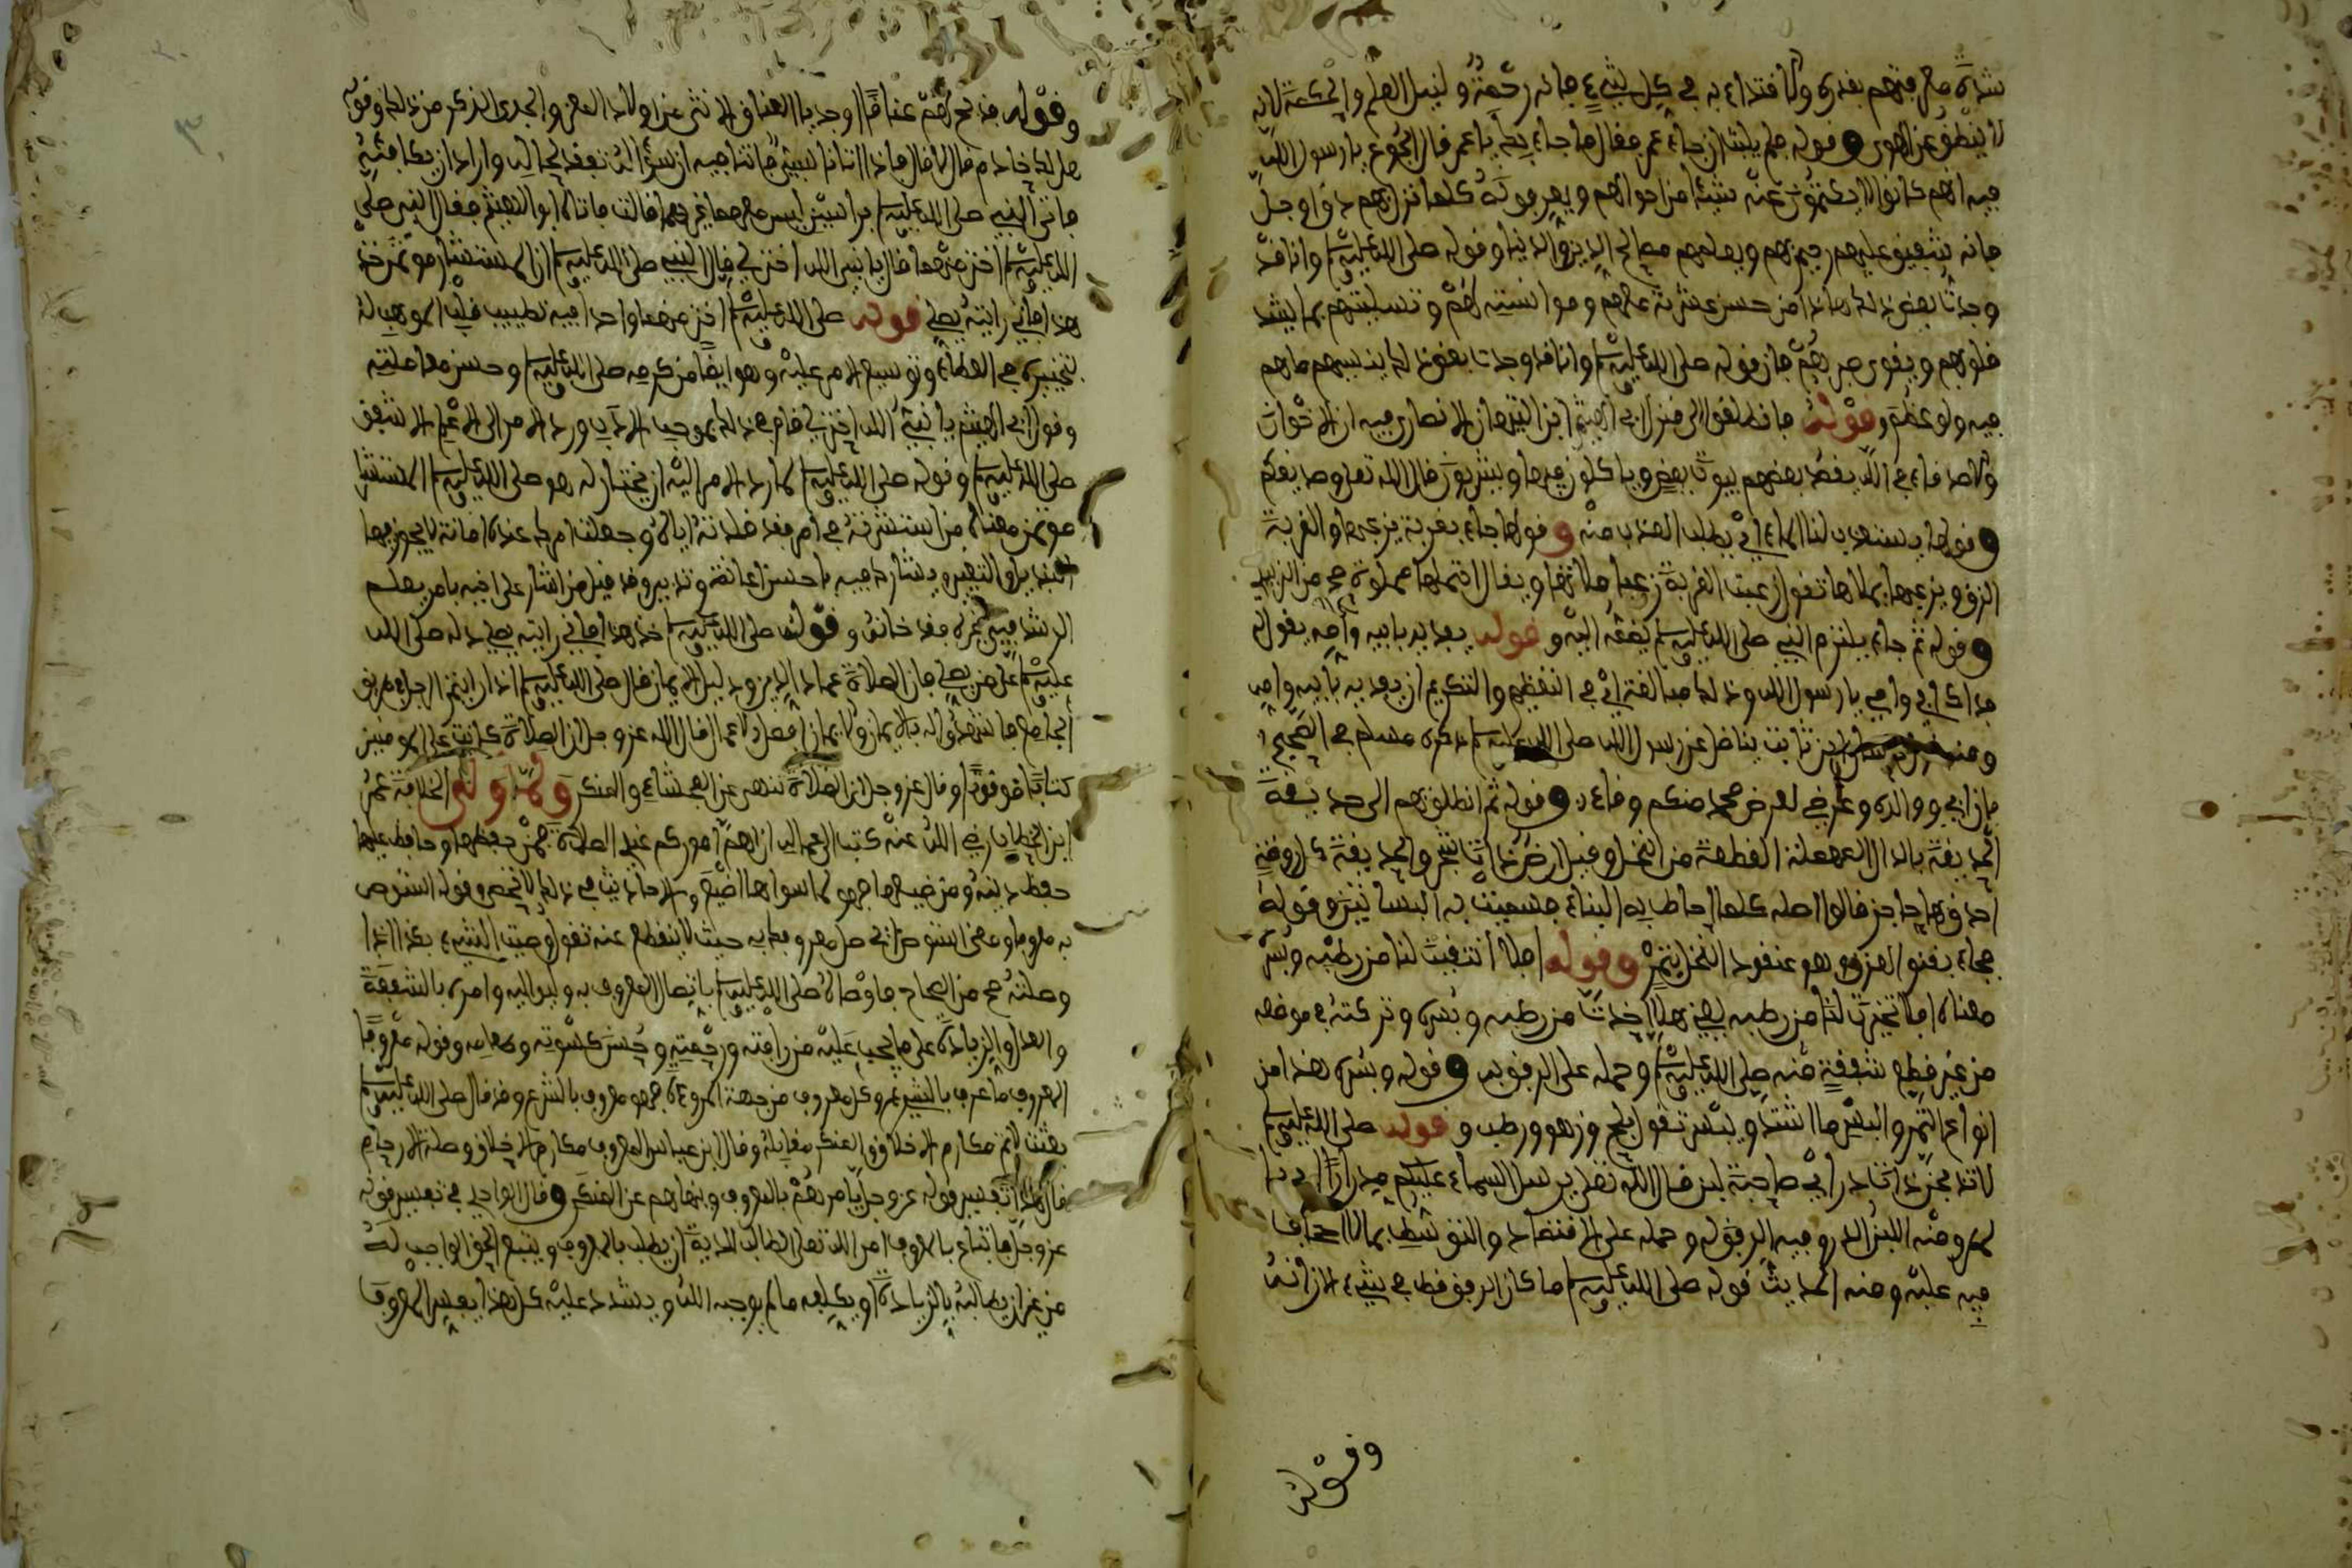 شدة معرفتهم بقدره والاقتداء به في كل شيء فإنه رحمة ولنيل العلم والحكمة لأنه
لا ينطق عن الهوى وقوله فلم يلبث أن جاء عمر فقال ما جاء بك يا عمر قال الجوع يا رسول الله
فيه أنهم كانوا لا يكتمون عنه شيئا من أحوالهم ويعرفونه كلما نزل بهم دق أو جل
فإنه شفيق عليهم رحيم بهم ويعلمهم مصالح الدين والدنيا وقوله صلى الله عليه وسلم وأنا قد
وجدت بعض ذلك هذا من حسن عشرته معهم ومؤانسته لهم وتسليتهم بما يشد
قلوبهم ويقوي صبرهم فإن قوله صلى الله عليه وسلم وأنا قد وجدت بعض ذلك ينسيهم ما هم
فيه ولو عظم وقوله فانطلقوا إلى منزل أبي الهيثم ابن التيهان الأنصاري فيه أن الإخوان
والأصدقاء في الله يقصد بعضهم بيوت بعض ويأكلون فيها ويشربون قال الله تعالى أو صديقكم
وقولها يستعذب لنا الماء أي يطلب العذب منه وقولها جاء بقربة يزعبها والقربة
الزق ويزعبها يملأها تقول زعبت القربة زعبا ملأتها ويقال احتملها مملوءة صح من الزبيدي
وقوله ثم جاء يلتزم النبي صلى الله عليه وسلم يضمه إليه وقوله يفديه بأبيه وأمه يقول له
فداك أبي وأمي يا رسول الله وذلك مبالغة أي في التعظيم والتكريم أن يفديه بأبيه وأمه
ومنه بن ثابت يناضل عن رسول الله صلى الله عليه وسلم ذكره مسلم في الصحيح
فإن أبي ووالده وعرضي لعرض محمد منكم وقاء وقوله ثم انطلق بهم إلى حديقة
الحديقة بالدال المهملة القطعة من النخل وقيل أرض ذات شجر والحديقة كل روضة
أحدق بها حاجز قالوا أصله كلما أحاط به البناء فسميت به البساتين وقوله
فجاء بقنو العذق وهو عنقود النخل يتمر وقوله أفلا انتقيت لنا من رطبه وبسره
معناه أفلا تخيرت لنا من رطبه يعني هلا أخذت من رطبه وبسره وتركته في موضعه
من غير قطع شفقة منه صلى الله عليه وسلم وحمله على الرفق به وقوله وبسره هذا من
أنواع التمر والبسر ما اشتد ويبس تقول بلح وزهو ورطب وقوله صلى الله عليه وسلم
لا تذبحن ذات در أي صاحبة لبن قال الله تعالى يرسل السماء عليكم مدرارا أي دبا
لهم ومنه اللبن الدر وفيه الرفق له وحمله على الاقتصاد والتوسط بما لا إجحاف
فيه عليه ومنه الحديث قوله صلى الله عليه وسلم ما كان الرفق قط في شيء إلا زانه
وقوله
وقوله فذبح لهم عناقا أو جديا العناق الأنثى من أولاد المعز والجدي الذكر من ذلك وقوله
هل لك خادم قال لا قال فإذا أتانا سبي فأتنا فيه أن سؤاله تفقد لحاله وأراد أن يكافئه
فأتى النبي صلى الله عليه وسلم برأسين ليس معهما غيرهما ثالث فأتاه أبو الهيثم فقال النبي صلى
الله عليه وسلم اختر منهما قال يا نبي الله اختر لي قال النبي صلى الله عليه وسلم إن المستشار مؤتمن خذ
هذا فإني رأيته يصلي قوله صلى الله عليه وسلم اختر منهما واحدا فيه تطييب قلب الموهب له
لتخييره في العطاء وتوسيع الأمر عليه وهو أيضا من كرمه صلى الله عليه وسلم وحسن معاملته
وقول أبي الهيثم يا نبي الله اختر لي قام هذا له بموجب الأدب ورد الأمر إلى الأعلم الأشفق
صلى الله عليه وسلم وقوله صلى الله عليه وسلم لما رد الأمر إليه أن يختار له هو صلى الله عليه وسلم المستشار
مؤتمن معناه من استشرته في أمر فقد قلدته إياه وجعلت أمرك عنده أمانة لا يجوز فيها
التبديل والتغيير ويشارك فيه بأحسن إعانة وتدبير وقد قيل من أشار على أخيه بأمر يعلم
الرشد في غيره فقد خانه وقوله صلى الله عليه وسلم خذ هذا فإني رأيته يصلي دله صلى الله
عليه وسلم على من يصلي فإن الصلاة عماد الدين ودليل الإيمان قال صلى الله عليه وسلم إذا رأيتم الرجل مرتفق
الجامع فاشهدوا له بالإيمان والإيمان أفضل الأعمال قال الله عز وجل إن الصلاة كانت على المؤمنين
كتابا موقوتا وقال عز وجل إن الصلاة تنهى عن الفحشاء والمنكر ولما ولي الخلافة عمر
ابن الخطاب رضي الله عنه كتب إلى عماله إن أهم أموركم عندي الصلاة فمن حفظها وحافظ عليها
حفظ دينه ومن ضيعها فهو لما سواها أضيع والأحاديث في ذلك لا تحصى وقوله استوص
به معروفا ومعنى استوص أي صل معروفك به حيث لا ينقطع عنه تقول وصيت الشيء بكذا إذا
وصلته صح من الصحاح فأوصاه صلى الله عليه وسلم باتصال المعروف به وليواليه وأمره بالشفقة
والعدل والزيادة على ما يجب عليه من رأفته ورحمته وحسن كسوته وطعامه وقوله معروفا
المعروف ما عرف بالشرع وكل معروف من جهة المروءة فهو معروف بالشرع وقد قال صلى الله عليه وسلم
بعثت لأتمم مكارم الأخلاق والمنكر مقابله وقال ابن عباس المعروف مكارم الأخلاق وصلة الأرحام
قال هذا تفسير قوله عز وجل يأمرهم بالمعروف وينهاهم عن المنكر وقال الواحدي في تفسير قوله
عز وجل فاتباع بالمعروف أمر الله تعالى الطالب للدية أن يطلب بالمعروف ويتبع الحق الواجب له
من غير أن يطالبه بالزيادة أو يكلفه ما لم يوجبه الله ويشدد عليه كل هذا يفسر المعروف